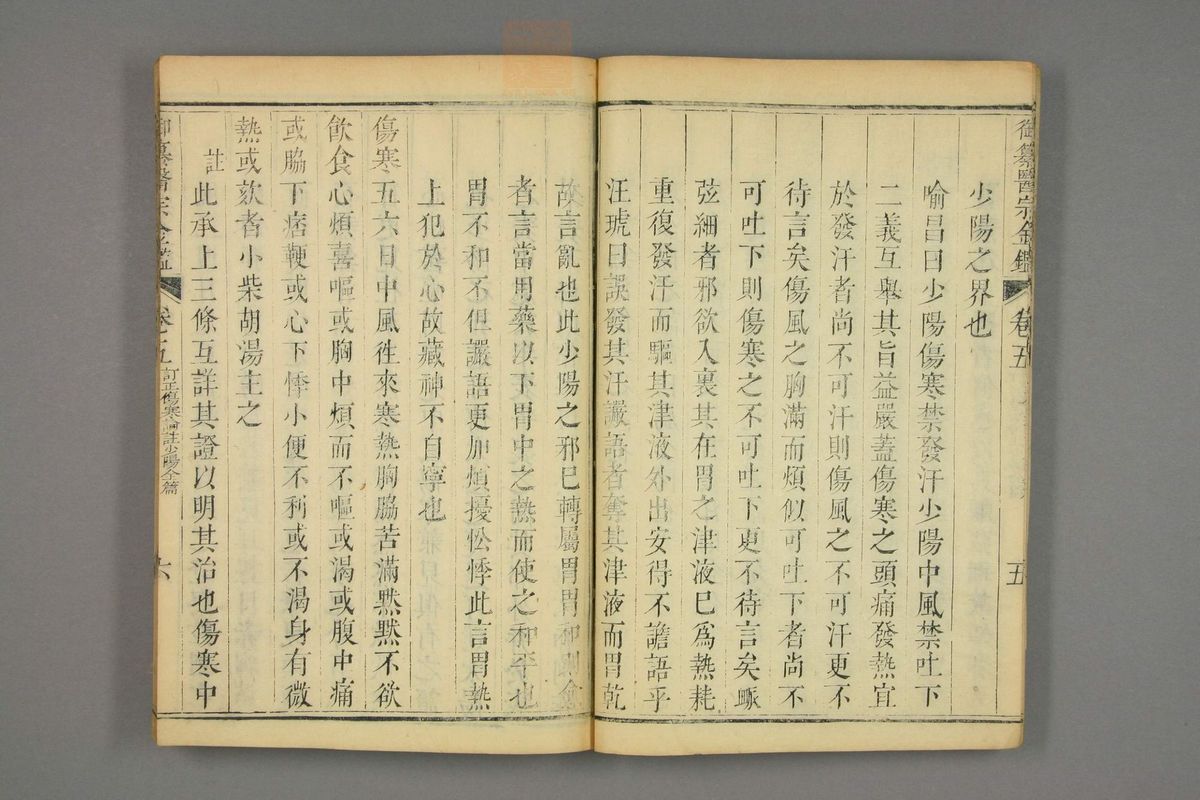 御纂醫宗金鑑 卷五 五
少陽之界也
喻昌曰少陽傷寒禁發汗少陽中風禁吐下
二義互舉其旨益嚴蓋傷寒之頭痛發熱宜
於發汗者尚不可汗則傷風之不可汗更不
待言矣傷風之胸滿而煩似可吐下者尚不
可吐下則傷寒之不可吐下更不待言矣脈
弦細者邪欲入裏其在胃之津液巳為熱耗
重復發汗而驅其津液外出安得不譫語乎
汪琥曰誤發其汗讝語者奪其津液而胃乾
故言亂也此少陽之邪巳轉屬胃胃和則愈
者言當用藥以下胃中之熱而使之和平也
胃不和不但讝語更加煩擾忪悸此言胃熱
上犯於心故藏神不自寧也
傷寒五六日中風徃來寒熱胸脇苦滿默默不欲
飲食心煩喜嘔或胸中煩而不嘔或渴或腹中痛
或脇下痞鞕或心下悸小便不利或不渴身有微
熱或欬者小柴胡湯主之
註此承上三條互詳其證以明其治也傷寒中
御纂醫宗金鑑 卷五 訂正傷寒論註少陽全篇 六